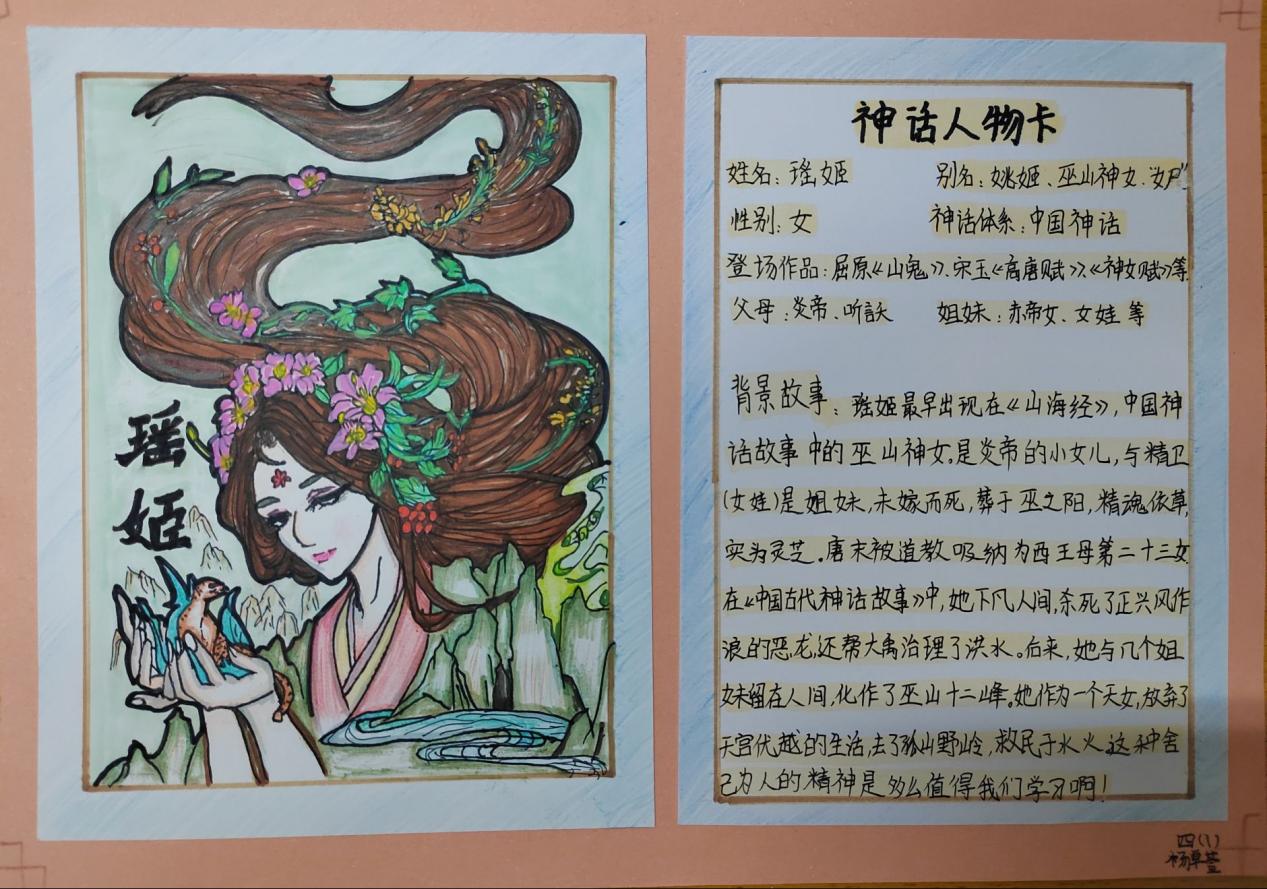 瑶姬
神话人物卡
姓名：瑶姬 别名：姚姬、巫山神女、
性别：女 神话体系：中国神话
登场作品：屈原《山鬼》、宋玉《高唐赋》、《神女赋》等
父母：炎帝、听訞 姐妹：赤帝女、女娃 等
背景故事：瑶姬最早出现在《山海经》，中国神
话故事中的巫山神女。是炎帝的小女儿，与精卫
(女娃)是姐妹，未嫁而死，葬于巫之阳，精魂依草，
实为灵芝。唐末被道教吸纳为西王母第二十三女
在《中国古代神话故事》中，她下凡人间，杀死了正兴风作
浪的恶龙，还帮大禹治理了洪水。后来，她与几个姐
妹留在人间，化作了巫山十二峰。她作为一个天女，放弃了
天宫优越的生活，去了孤山野岭，救民于水火。这种舍
己为人的精神是多么值得我们学习啊！
四(1)